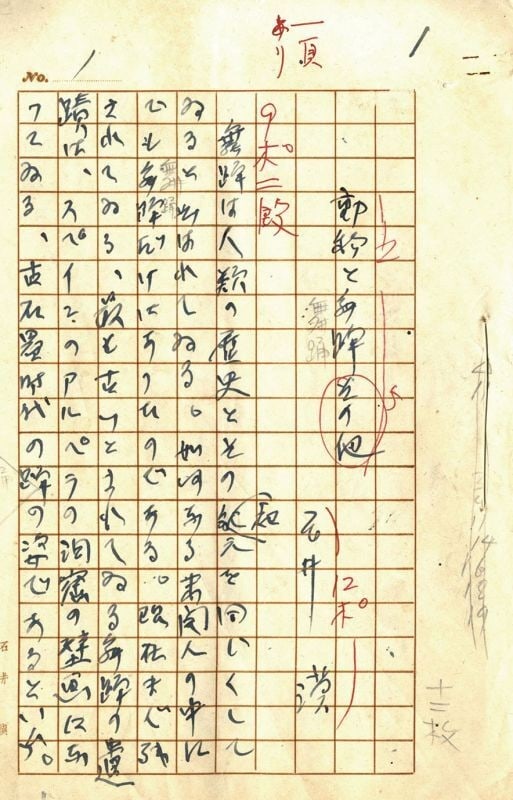 一頁
あり
1
No. 1
と舞踊その他
舞踊
石井 漠
12ポ
9ポ二段
舞踊は人類の歴史とその紀元を同じくして
ゐると云はれてゐる。如何なる未開人の中に
舞踊
でも舞踊だけはあつたのである。現在まで残
されてゐる、最も古いとされてゐる舞踊の遺
蹟は、スペインのアルペラの洞窟の壁画に残
つてゐる、古石器時代の踊の姿であるといふ。
十三枚